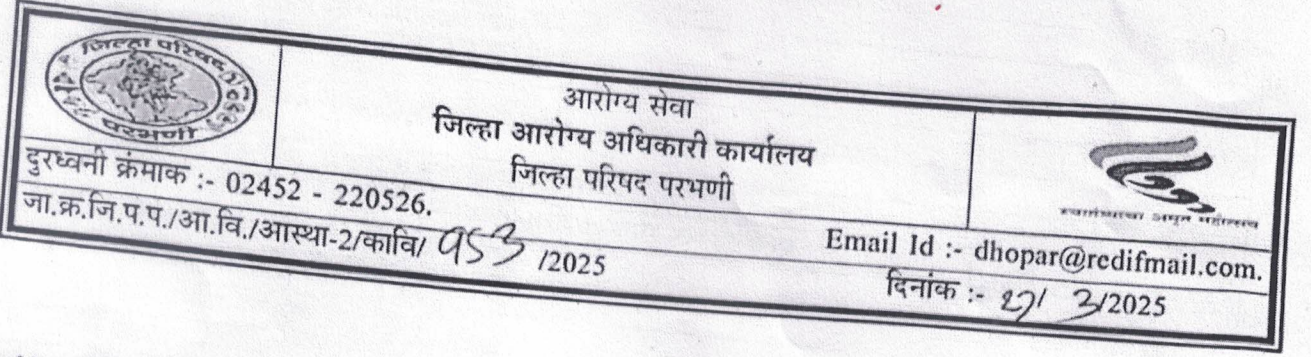 जिल्हा परिषद
परभणी
आरोग्य सेवा
जिल्हा आरोग्य अधिकारी कार्यालय
जिल्हा परिषद परभणी
स्वातंत्र्याचा अमृत महोत्सव
दुरध्वनी क्रंमाक :- 02452 - 220526.
Email Id :- dhopar@redifmail.com.
जा.क्र.जि.प.प./आ.वि./आस्था-2/कावि/ ९५३ /2025
दिनांक :- २१/ 3/2025